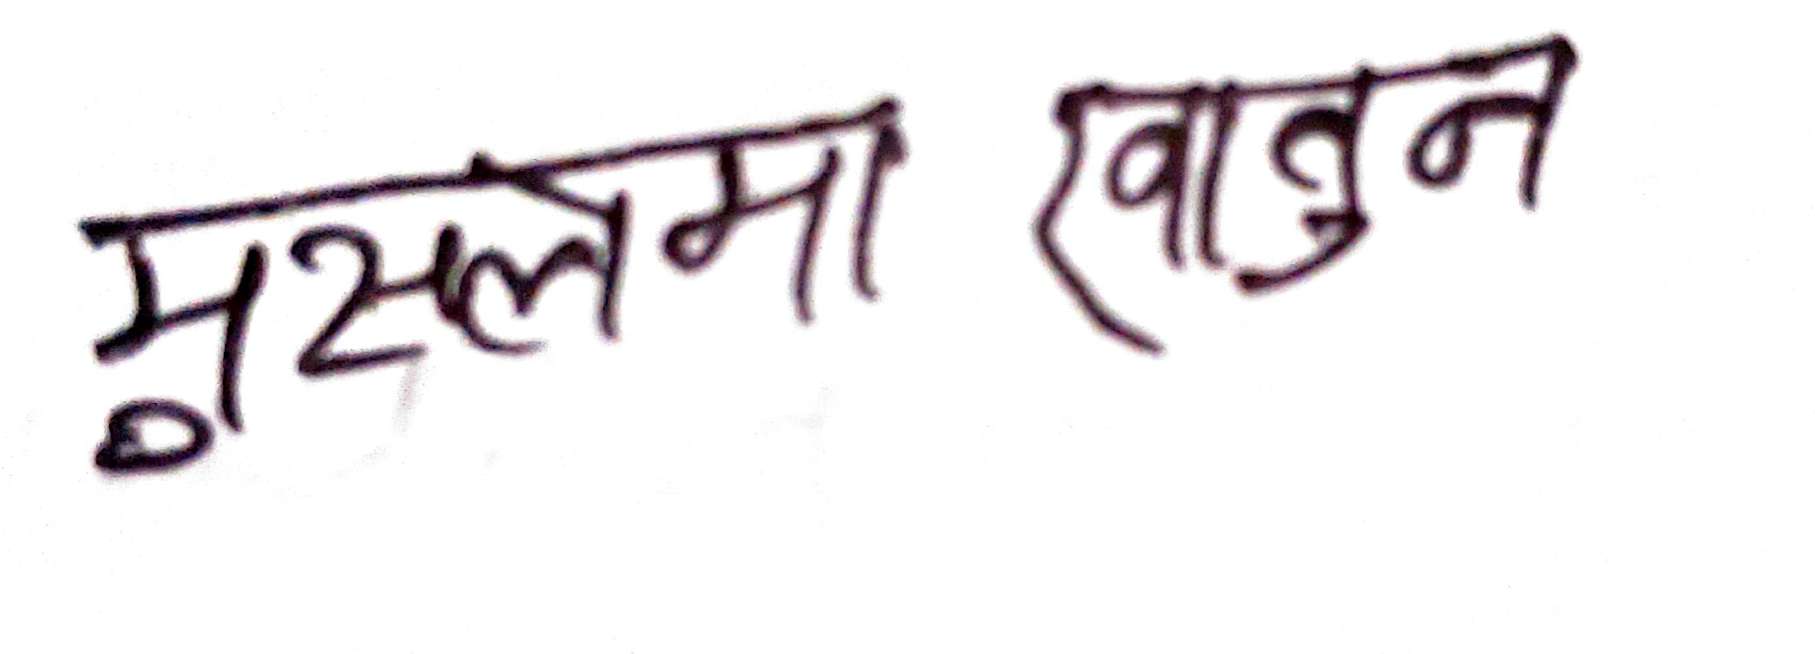 मुसलमा खातुन